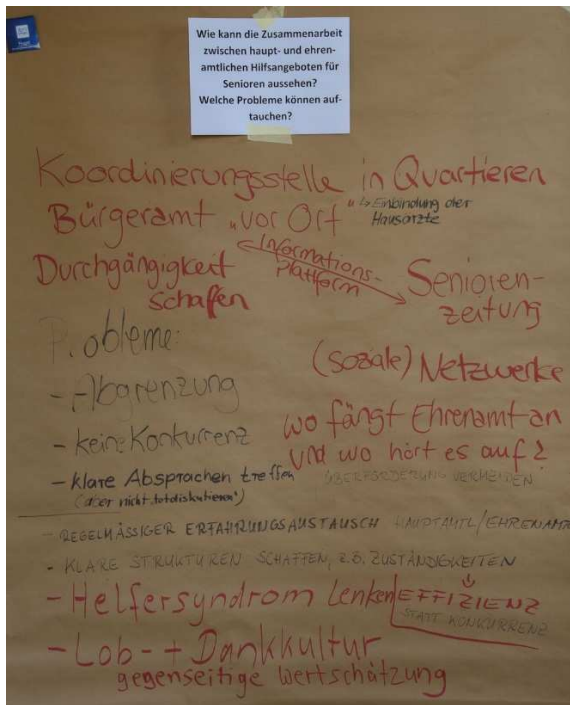 Wie kann die Zusammenarbeit
zwischen haupt- und ehren-
amtlichen Hilfsangeboten für
Senioren aussehen?
Welche Probleme können auf-
tauchen?
Koordinierungsstelle in Quartieren
Bürgeramt „vor Ort“
↳ Einbindung der
Hausärzte
Informations-
Plattform
Durchgängigkeit
schaffen
Senioren-
zeitung
Probleme:
(soziale) Netzwerke
- Abgrenzung
- keine Konkurrenz
wo fängt Ehrenamt an
und wo hört es auf?
- klare Absprachen treffen
(aber nicht „totdiskutieren“)
ÜBERFORDERUNG VERMEIDEN
- REGELMÄSSIGER ERFAHRUNGSAUSTAUSCH HAUPTAMTL/EHRENAMT
- KLARE STRUKTUREN SCHAFFEN, Z.B. ZUSTÄNDIGKEITEN
- Helfersyndrom lenken
EFFIZIENZ
STATT KONKURRENZ
- Lob- + Dankkultur
gegenseitige Wertschätzung